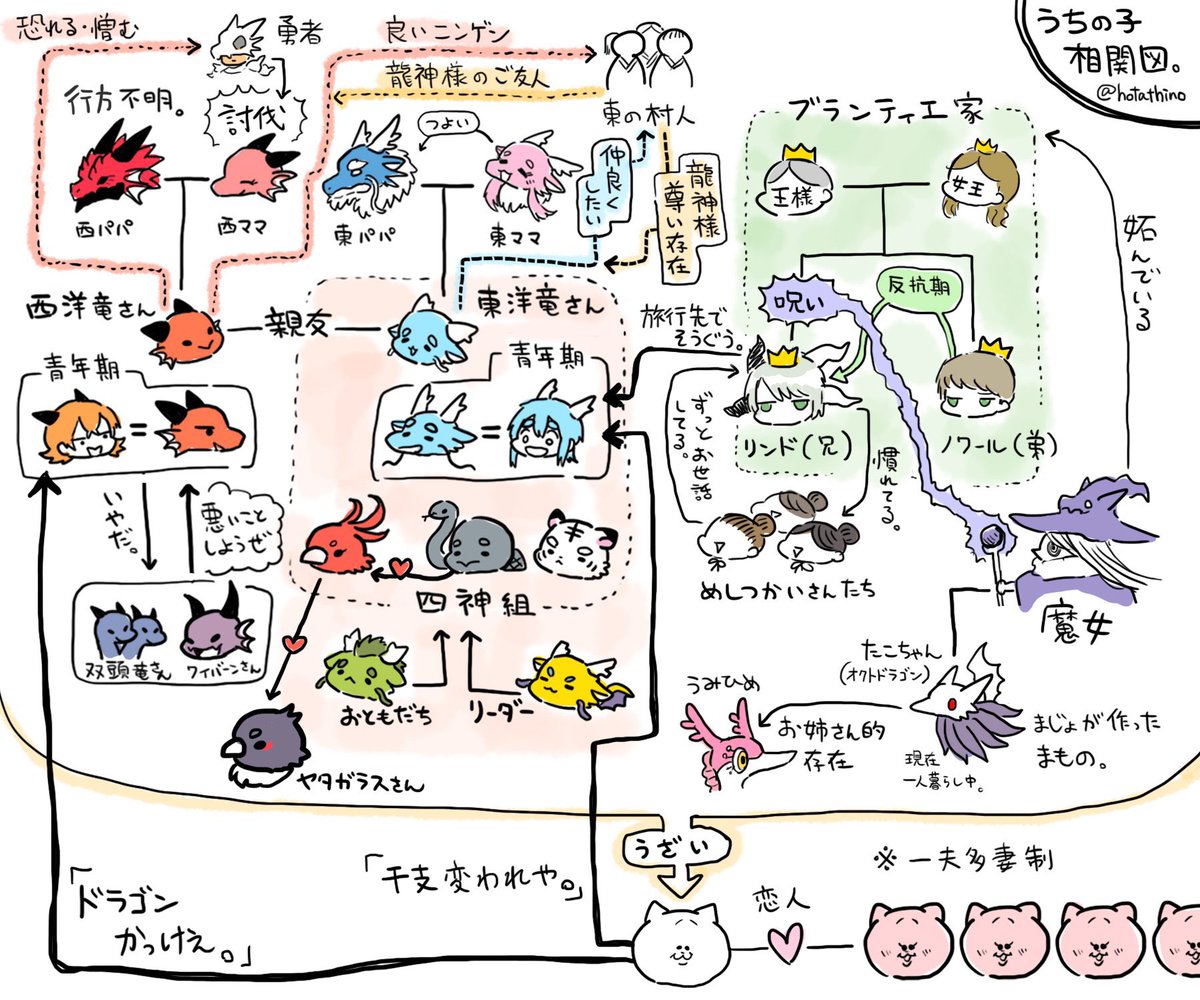 うちの子
相関図。
@hotathino
恐れる・憎む
勇者
良いニンゲン
龍神様のご友人
東の村人
行方不明。
討伐
つよい
西パパ
西ママ
東パパ
東ママ
仲良く
したい
龍神様
尊い存在
西洋竜さん
親友
東洋竜さん
青年期
=
青年期
=
いやだ。
悪いこと
しようぜ
双頭竜さん
ワイバーンさん
四神組
おともだち
リーダー
ヤタガラスさん
ブランティエ家
王様
女王
呪い
反抗期
旅行先で
そうぐう。
リンド(兄)
ノワール(弟)
ずっとお世話
してる。
慣れてる。
めしつかいさんたち
妬んでいる
魔女
たこちゃん
(オクトドラゴン)
まじょが作った
まもの。
現在
一人暮らし中。
うみひめ
お姉さん的
存在
うざい
「ドラゴン
かっけえ。」
「干支変われや。」
恋人
※一夫多妻制